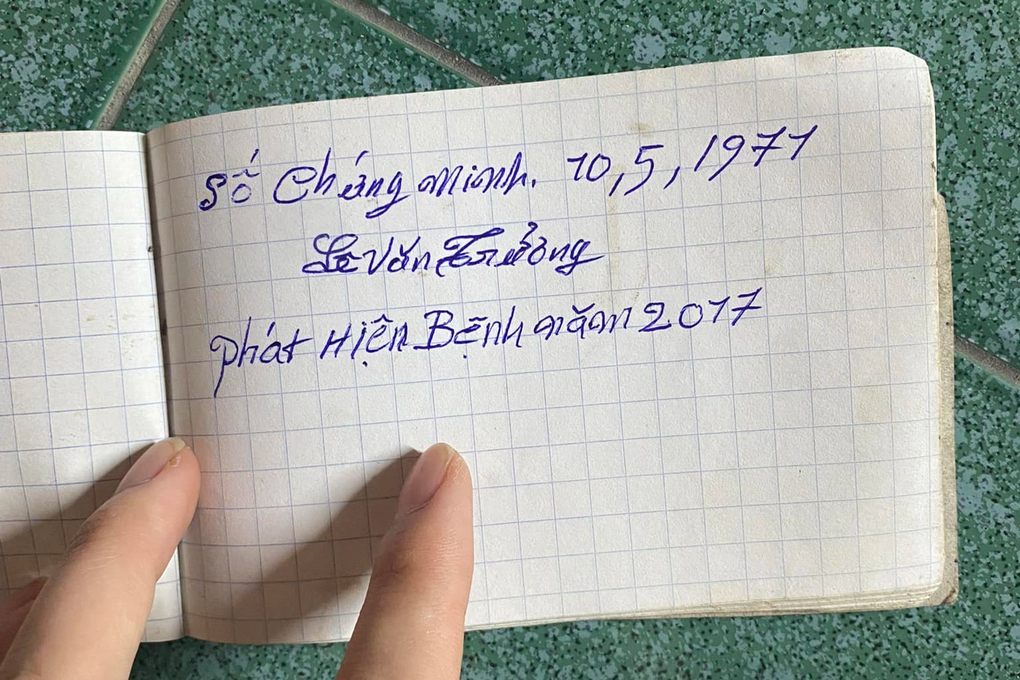 Số Chứng minh. 10,5,1971
Lê Văn Trưởng
phát Hiện Bệnh năm 2017